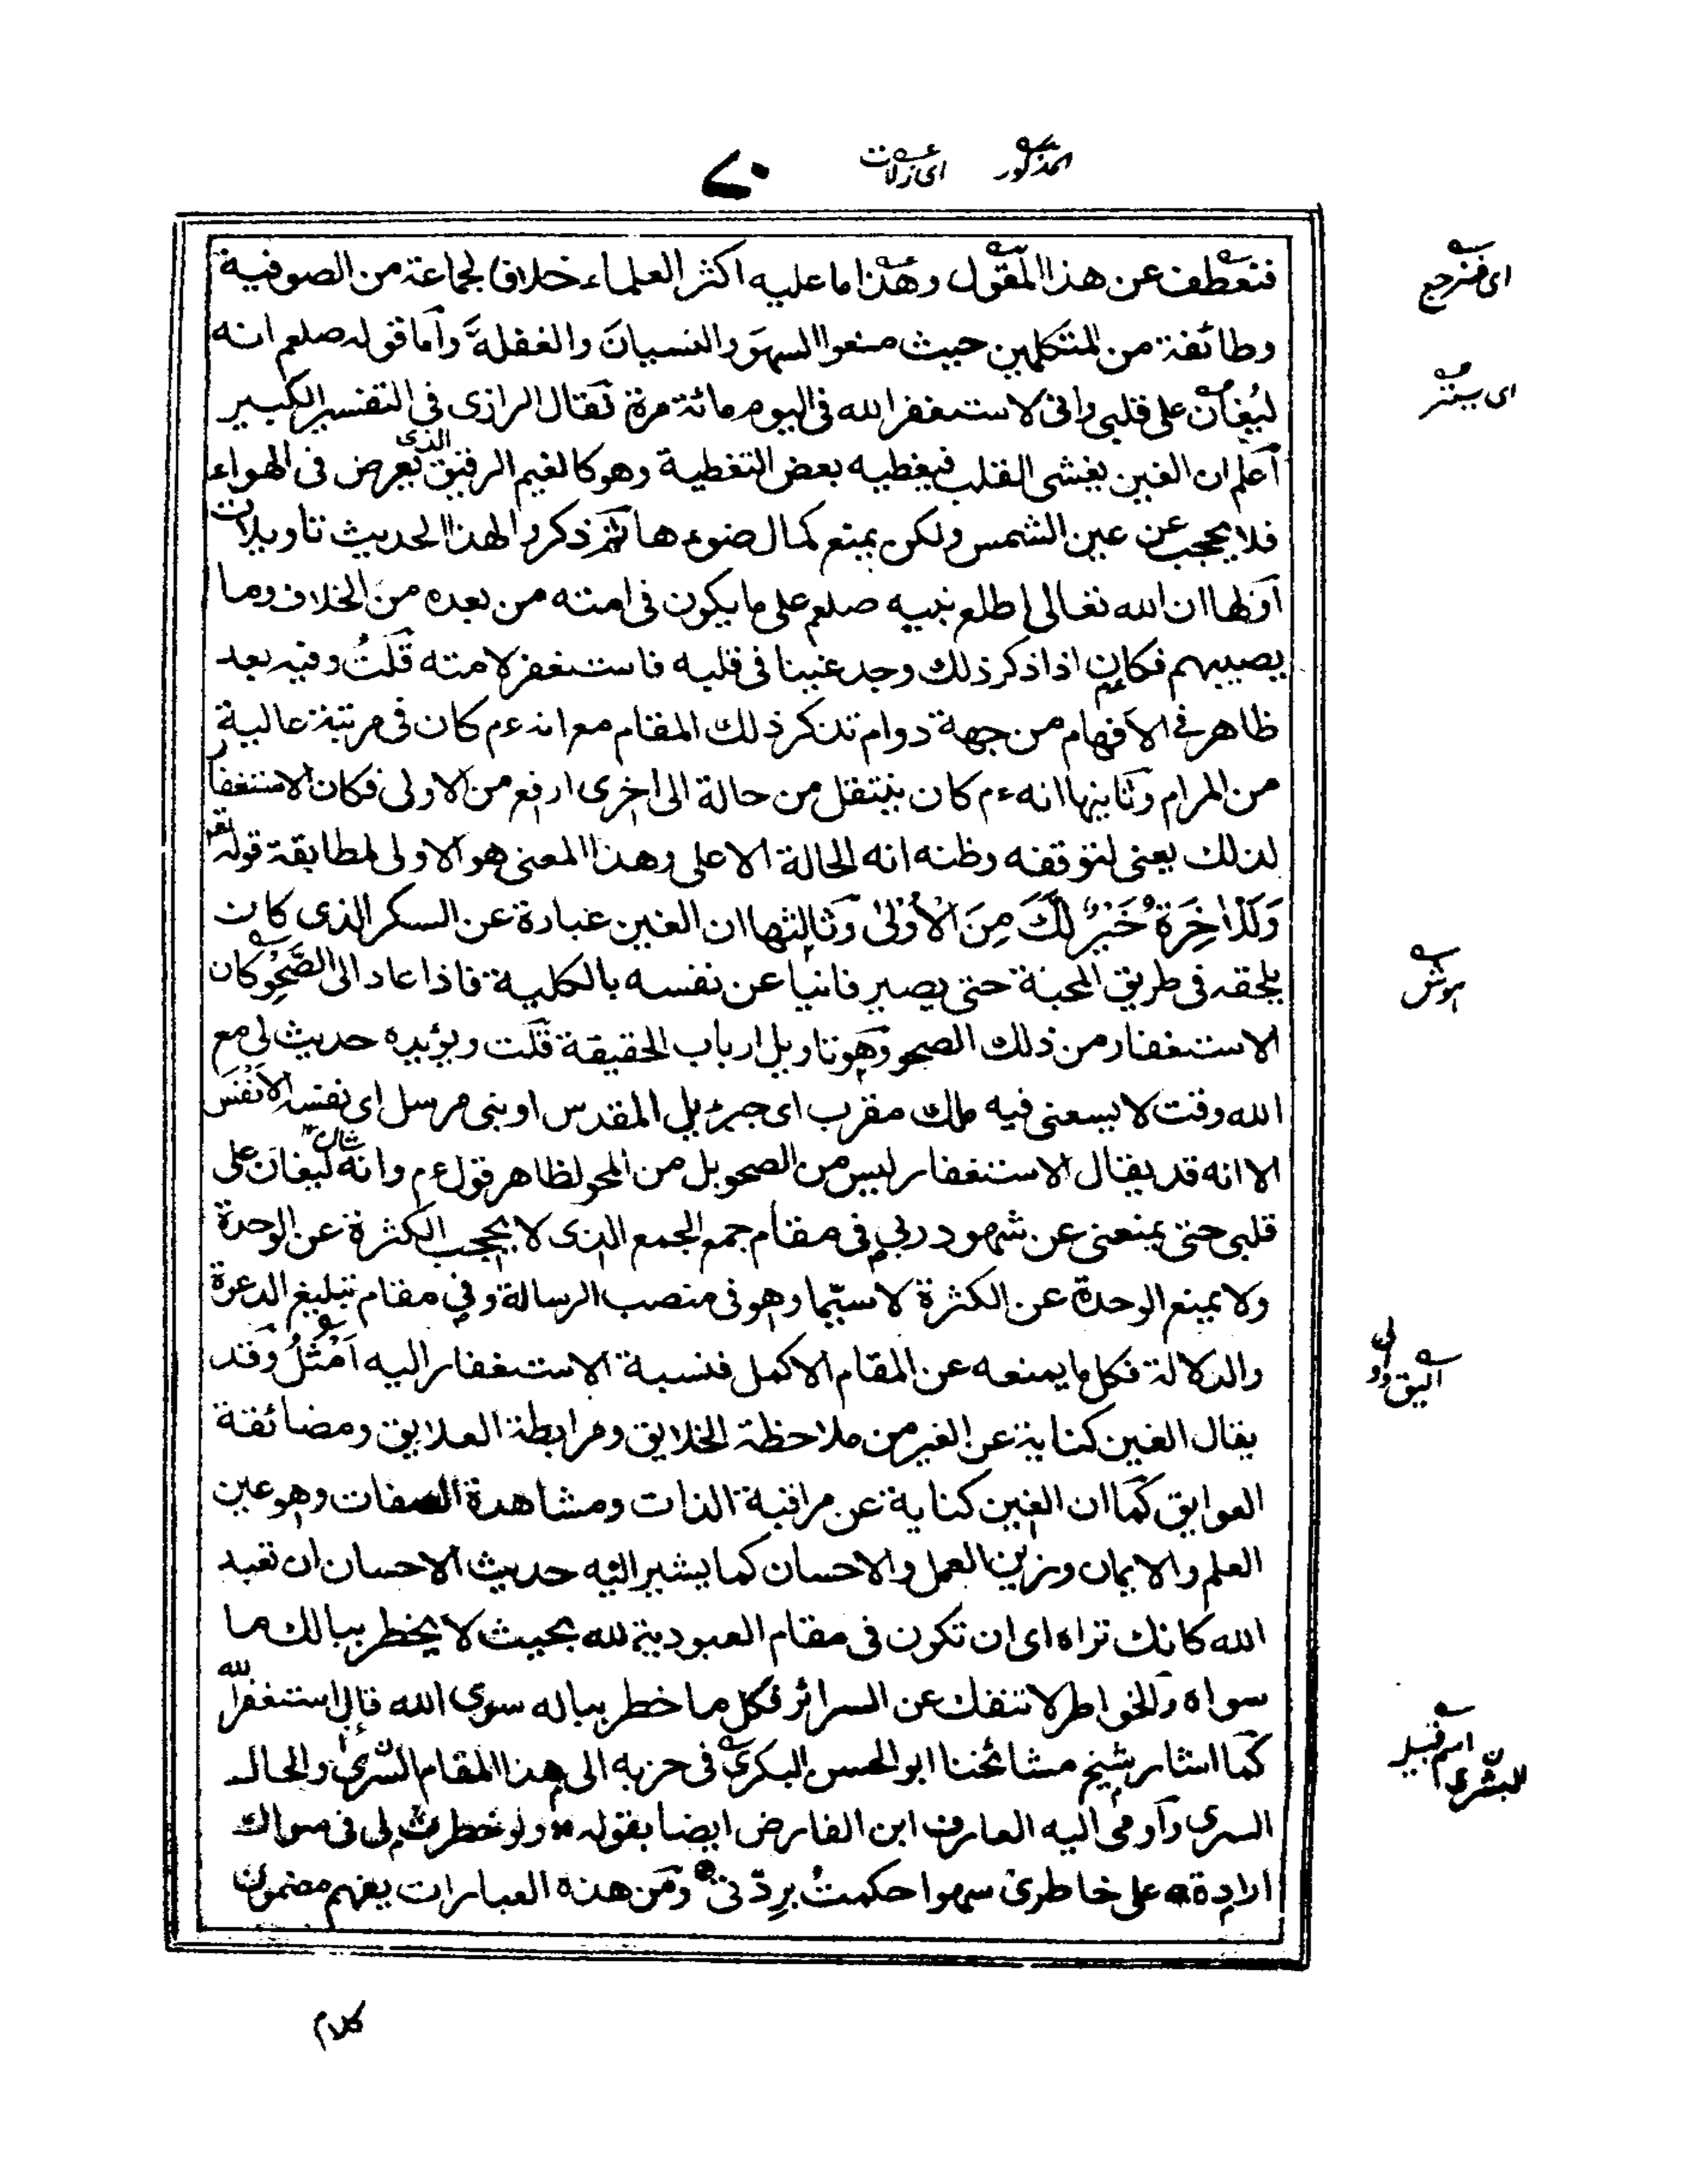 المذكور
اى زلات
٧٠
فنعطف عن هذا المقول وهذا ما عليه اكثر العلماء خلافا لجماعة من الصوفية
اى فنرجع
وطائفة من المتكلمين حيث منعوا السهوَ والنسيانَ والغفلةَ وأما قوله صلعم انه
ليُغان على قلبى وانى لاستغفر الله فى اليوم مائة مرة فقال الرازى فى التفسير الكبير
اى يستر
أعلم ان الغين يغشى القلب فيغطيه بعض التغطية وهو كالغيم الرقيق الذى يعرض فى الهواء
فلا يحجب عن عين الشمس ولكن يمنع كمال ضوءها ثم ذكروا لهذا الحديث تاويلات
اولها ان الله تعالى اطلع نبيه صلعم على ما يكون فى امته من بعده من الخلاف وما
يصيبهم فكان اذا ذكر ذلك وجد غينا فى قلبه فاستغفر لامته قلتُ وفيه بعد
ظاهر فى الأفهام من جهة دوام تذكر ذلك المقام مع انه ءم كان فى مرتبة عالية
من المرام وثانيها انه ءم كان ينتقل من حالة الى اخرى ارفع من الاولى فكان الاستغفار
لذلك يعنى لتوقفه وظنه انه الحالة الاعلى وهذا المعنى هو الاولى لمطابقة قوله تع
وَلَلْاٰخِرَةُ خَيْرٌ لَكَ مِنَ الْأُوْلٰى وثالثها ان الغين عبارة عن السكر الذى كان
يلحقه فى طريق المحبة حتى يصير فانيا عن نفسه بالكلية فاذا عاد الى الصَّحْوِ كان
هوش
الاستغفار من ذلك الصحو وهو تاويل ارباب الحقيقة قلت ويؤيده حديث لى مع
الله وقت لا يسعنى فيه ملك مقرب اى جبرءيل المقدس او نبى مرسل اى نفسه الأنفَس
الا انه قد يقال الاستغفار ليس من الصحو بل من المحو لظاهر قوله ءم وانه ليغان على
قلبى حتى يمنعنى عن شهود ربى فى مقام جمع الجمع الذى لا يحجب الكثرة عن الوحدة
ولا يمنع الوحدة عن الكثرة لا سيّما وهو فى منصب الرسالة وفى مقام تبليغ الدعوة
والدلالة فكل ما يمنعه عن المقام الاكمل فنسبة الاستغفار اليه اَمْثَلُ وقد
يقال الغين كناية عن الغير من ملاحظة الخلايق ومرابطة العلايق ومضائقة
العوايق كما ان الغين كناية عن مراقبة الذات ومشاهدة الصفات وهو عين
العلم والايمان وزين العمل والاحسان كما يشير اليه حديث الاحسان ان تعبد
الله كانك تراه اى ان تكون فى مقام العبودية لله بحيث لا يخطر ببالك ما
سواه والخواطر لا تنفك عن السرائر فكل ما خطر بباله سوى الله قال استغفر الله
كما اشار شيخ مشائخنا ابو الحسن البكرى فى حزبه الى هذا المقام السرى والحال
السرى وأومى اليه العارف ابن الفارض ايضا بقوله * ولو خطرت لى فى سواك
ارادة * على خاطرى سهوا حكمتُ برِدّتى * ومن هذه العبارات يفهم مضمون
كلام